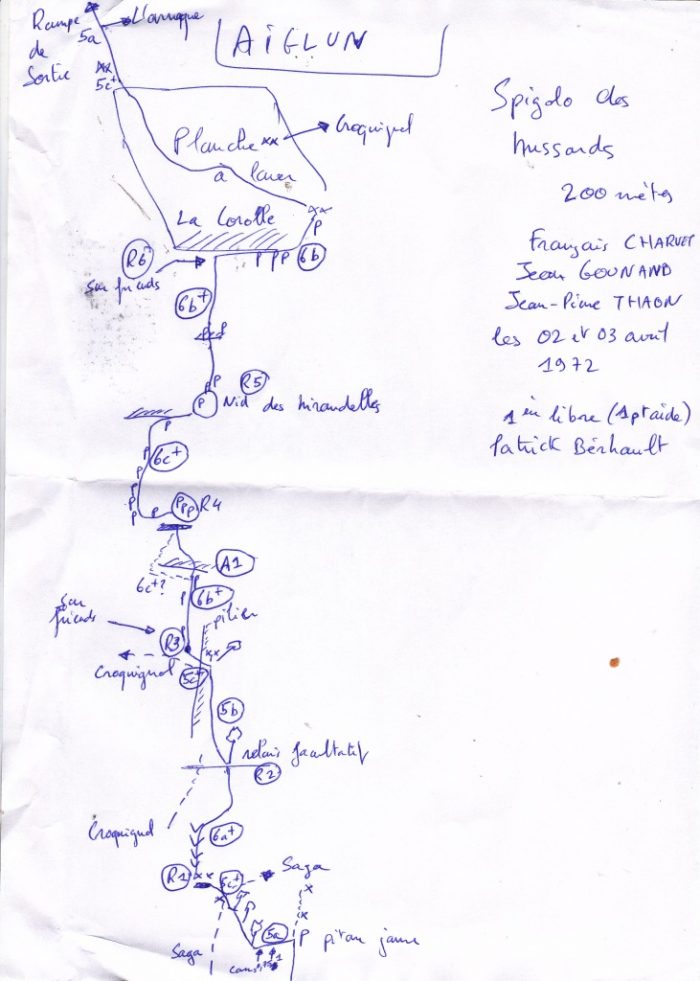 AIGLUN
Spigolo des
hussards
200 mètres
Français CHARVET
Jean GOUNAND
Jean-Pierre THAON
les 02 et 03 avril
1972
1ère en libre (1 pt aide)
Patrick Bérhault
Rampe
de
Sortie
5a
L'arnaque
xx
5c+
Planche xx
à laver
Croquignol
La Corolle
xx
P
R6
sur friends
P P P
6b
6b+
P
R5
P
Nid des mirandelles
P
6c+
P
P
P
P
P
P
PPP
R4
A1
6c+?
P
P
6b+
pilier
sur
friends
P
R3
xx
Croquignol
5c+
5b
relais facultatif
R2
Croquignol
6a+
R1
xx
5c+
Saga
x
x
x
5a
P piton jaune
Saga